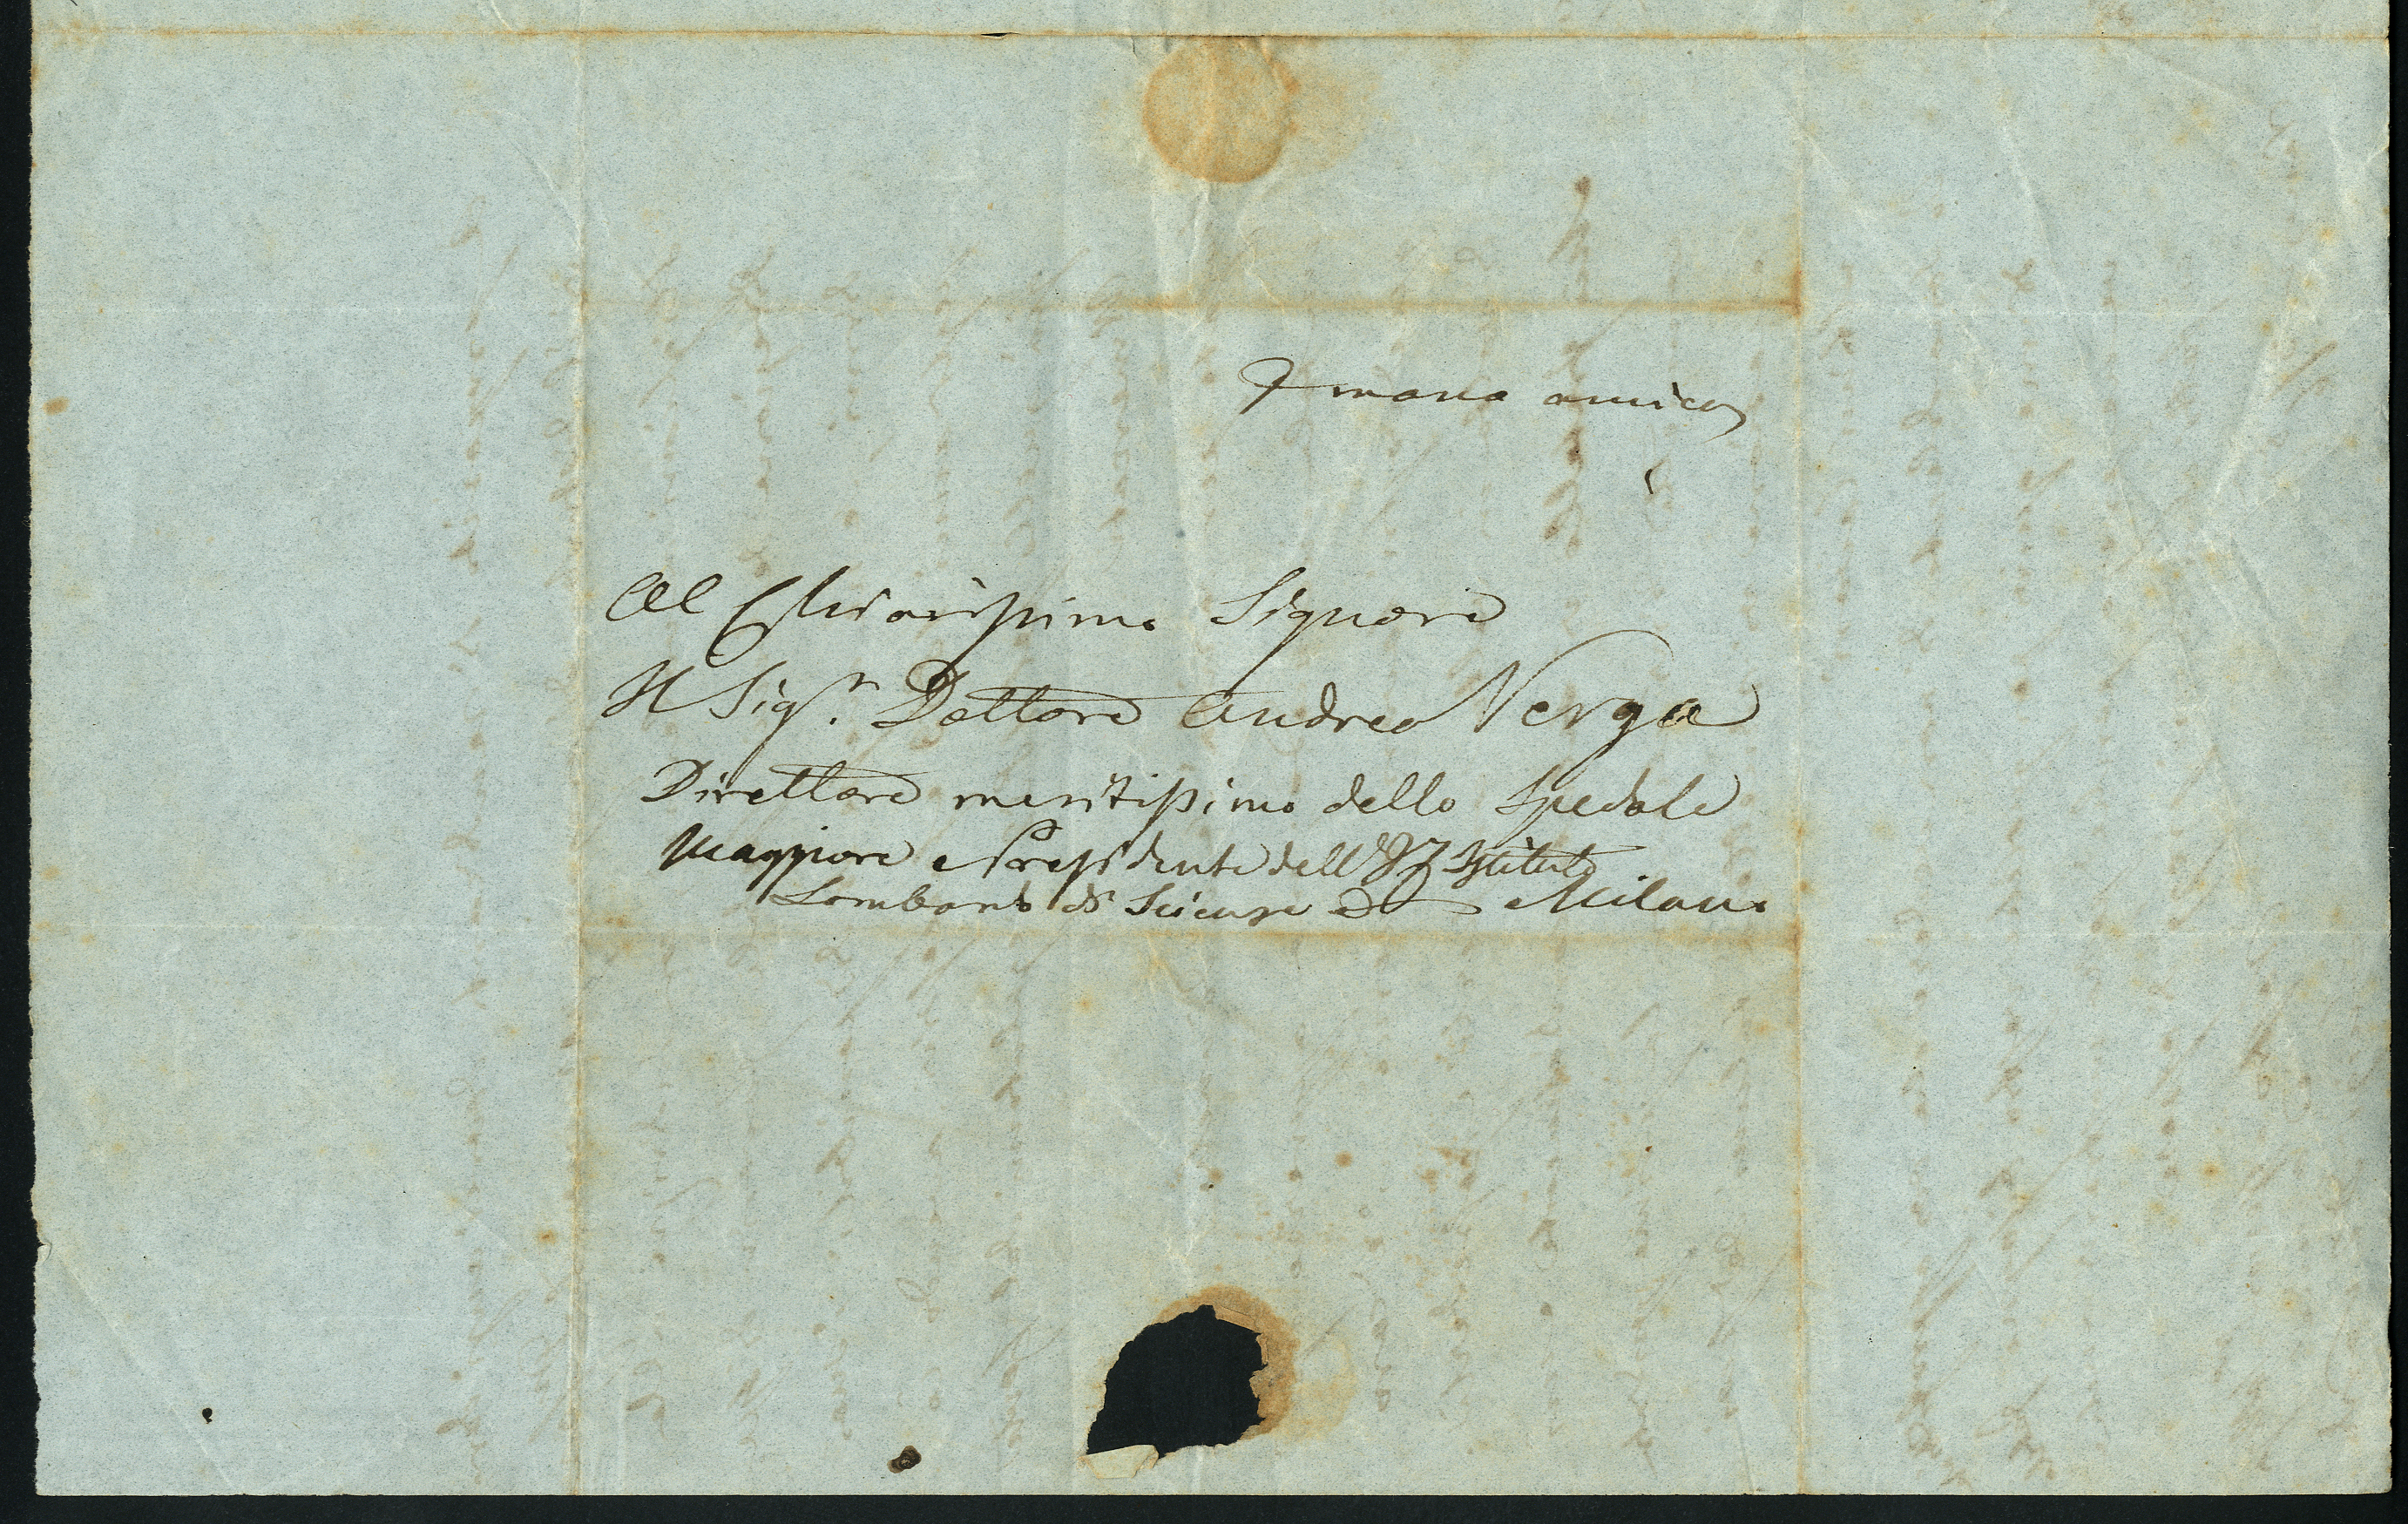 P mano amica
Al Chiarissimo Signore
Il Sigr. Dottore Andrea Verga
Direttore meritissimo dello Spedale
Maggiore e Presidente dell' I. Istituto
Lombardo di Scienze Milano